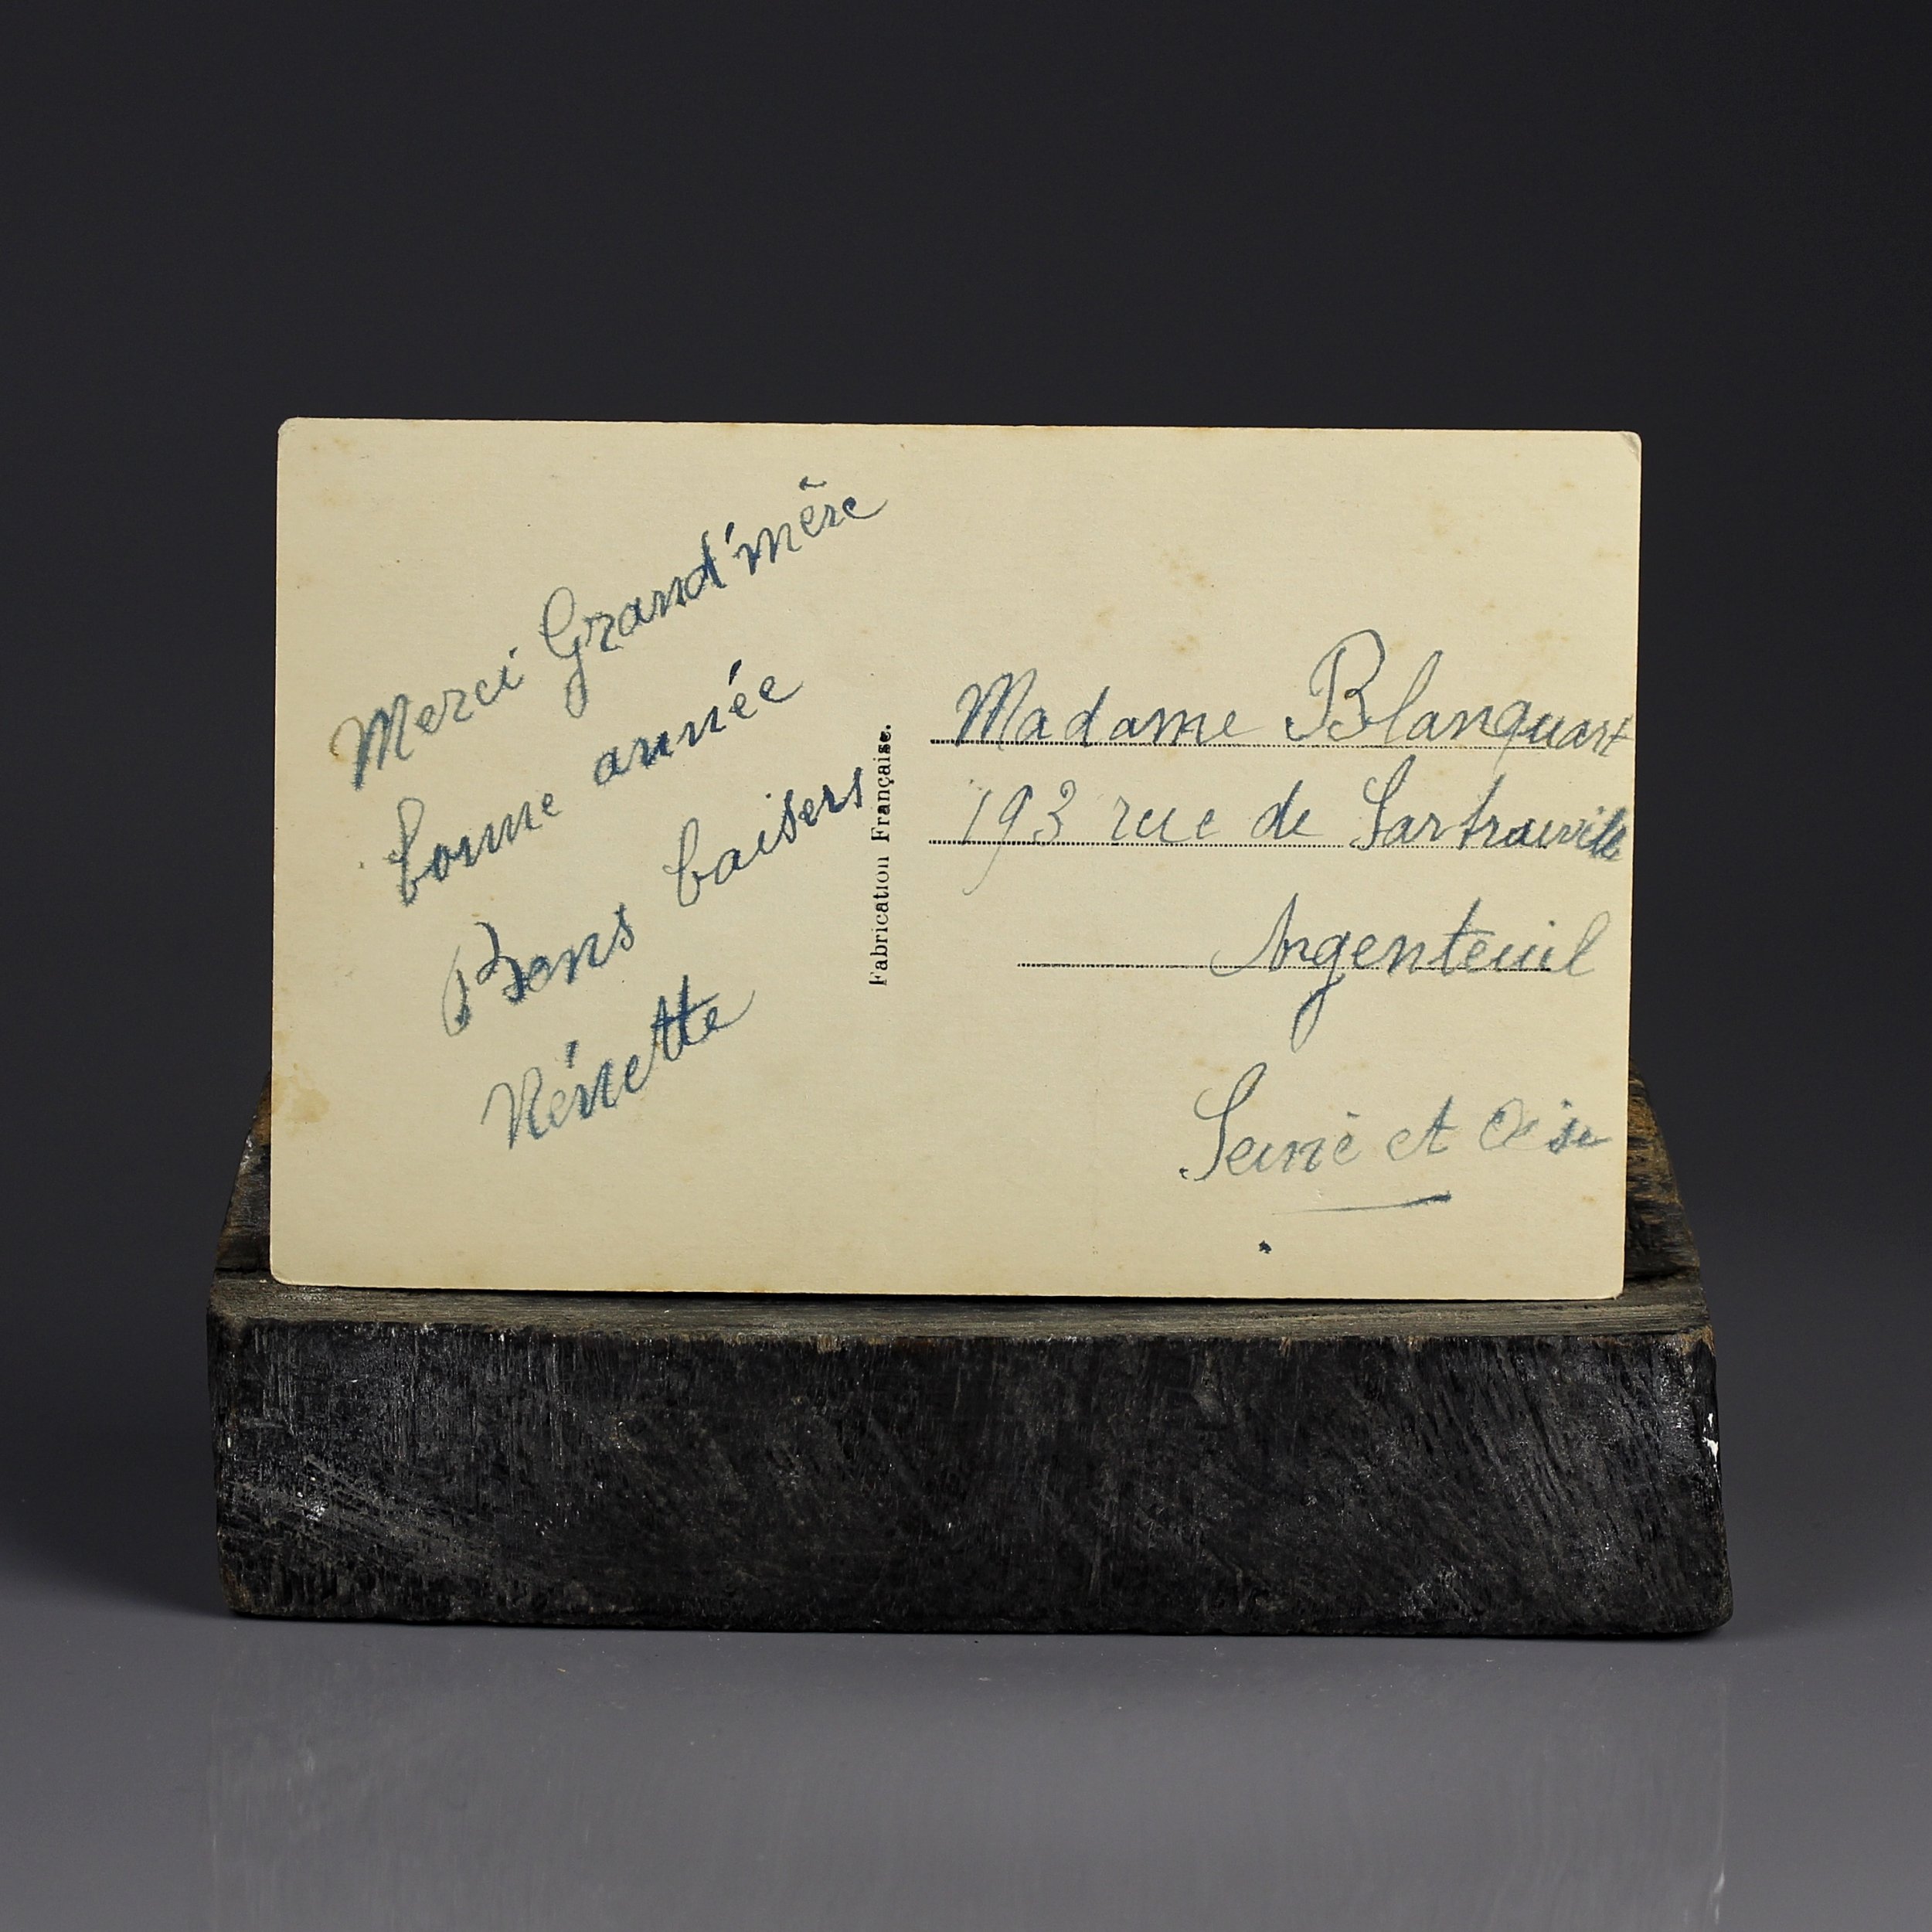 Merci Grand'mère
bonne année
Bons baisers
Nénette
Fabrication Française.
Madame Blanquart
193 rue de Sartrouville
Argenteuil
Seine et Oise